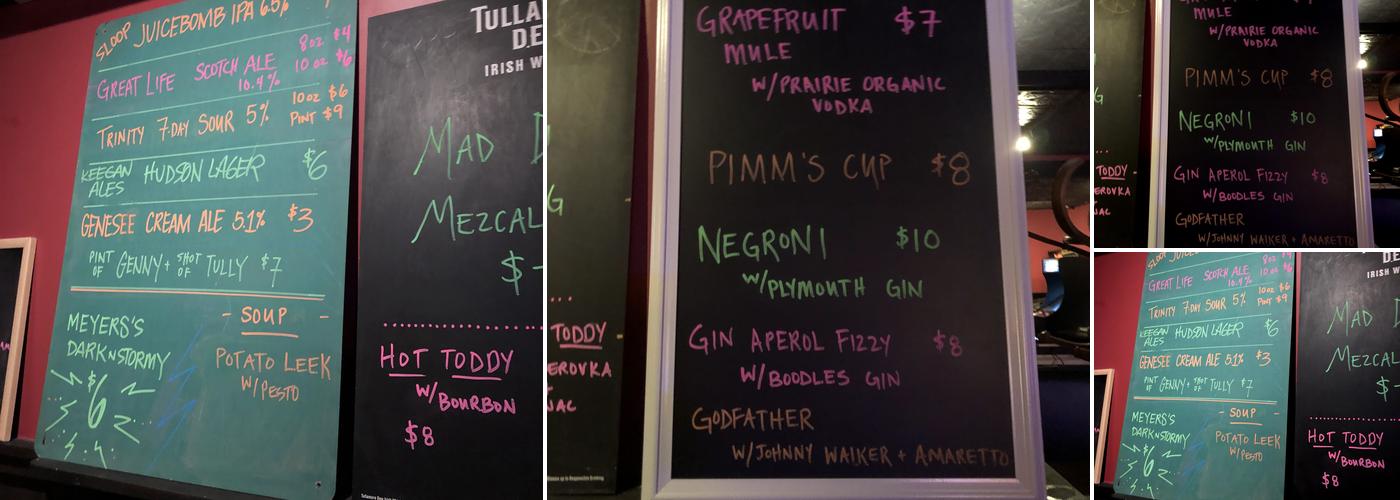 SLOOP JUICEBOMB IPA 6.5%
GREAT LIFE SCOTCH ALE 8oz $4
10.4% 10 oz $6
TRINITY 7-DAY SOUR 5% 10oz $6
PINT $9
KEEGAN ALES HUDSON LAGER $6
GENESEE CREAM ALE 5.1% $3
PINT OF GENNY + SHOT OF TULLY $7
MEYERS'S
DARK N STORMY
$6
- SOUP -
POTATO LEEK
W/PESTO
TULLA
DE
IRISH W
MAD D
MEZCAL
$
HOT TODDY
W/BOURBON
$8
G
...
TODDY
EROVKA
NAC
GRAPEFRUIT $7
MULE
W/PRAIRIE ORGANIC
VODKA
PIMM'S CUP $8
NEGRONI $10
W/PLYMOUTH GIN
GIN APEROL FIZZY $8
W/BOODLES GIN
GODFATHER
W/JOHNNY WALKER + AMARETTO
MULE
W/PRAIRIE ORGANIC
VODKA
PIMM'S CUP $8
NEGRONI $10
W/PLYMOUTH GIN
GIN APEROL FIZZY $8
W/BOODLES GIN
GODFATHER
W/JOHNNY WALKER + AMARETTO
TODDY
EROVKA
NAC
GREAT LIFE SCOTCH ALE 8oz
10.4% 10 oz $6
TRINITY 7-DAY SOUR 5% 10oz $6
PINT $9
KEEGAN ALES HUDSON LAGER $6
GENESEE CREAM ALE 5.1% $3
PINT OF GENNY + SHOT OF TULLY $7
MEYERS'S
DARK N STORMY
$6
- SOUP -
POTATO LEEK
W/PESTO
DE
IRISH W
MAD
MEZCAL
$
HOT TODDY
W/BOURBON
$8